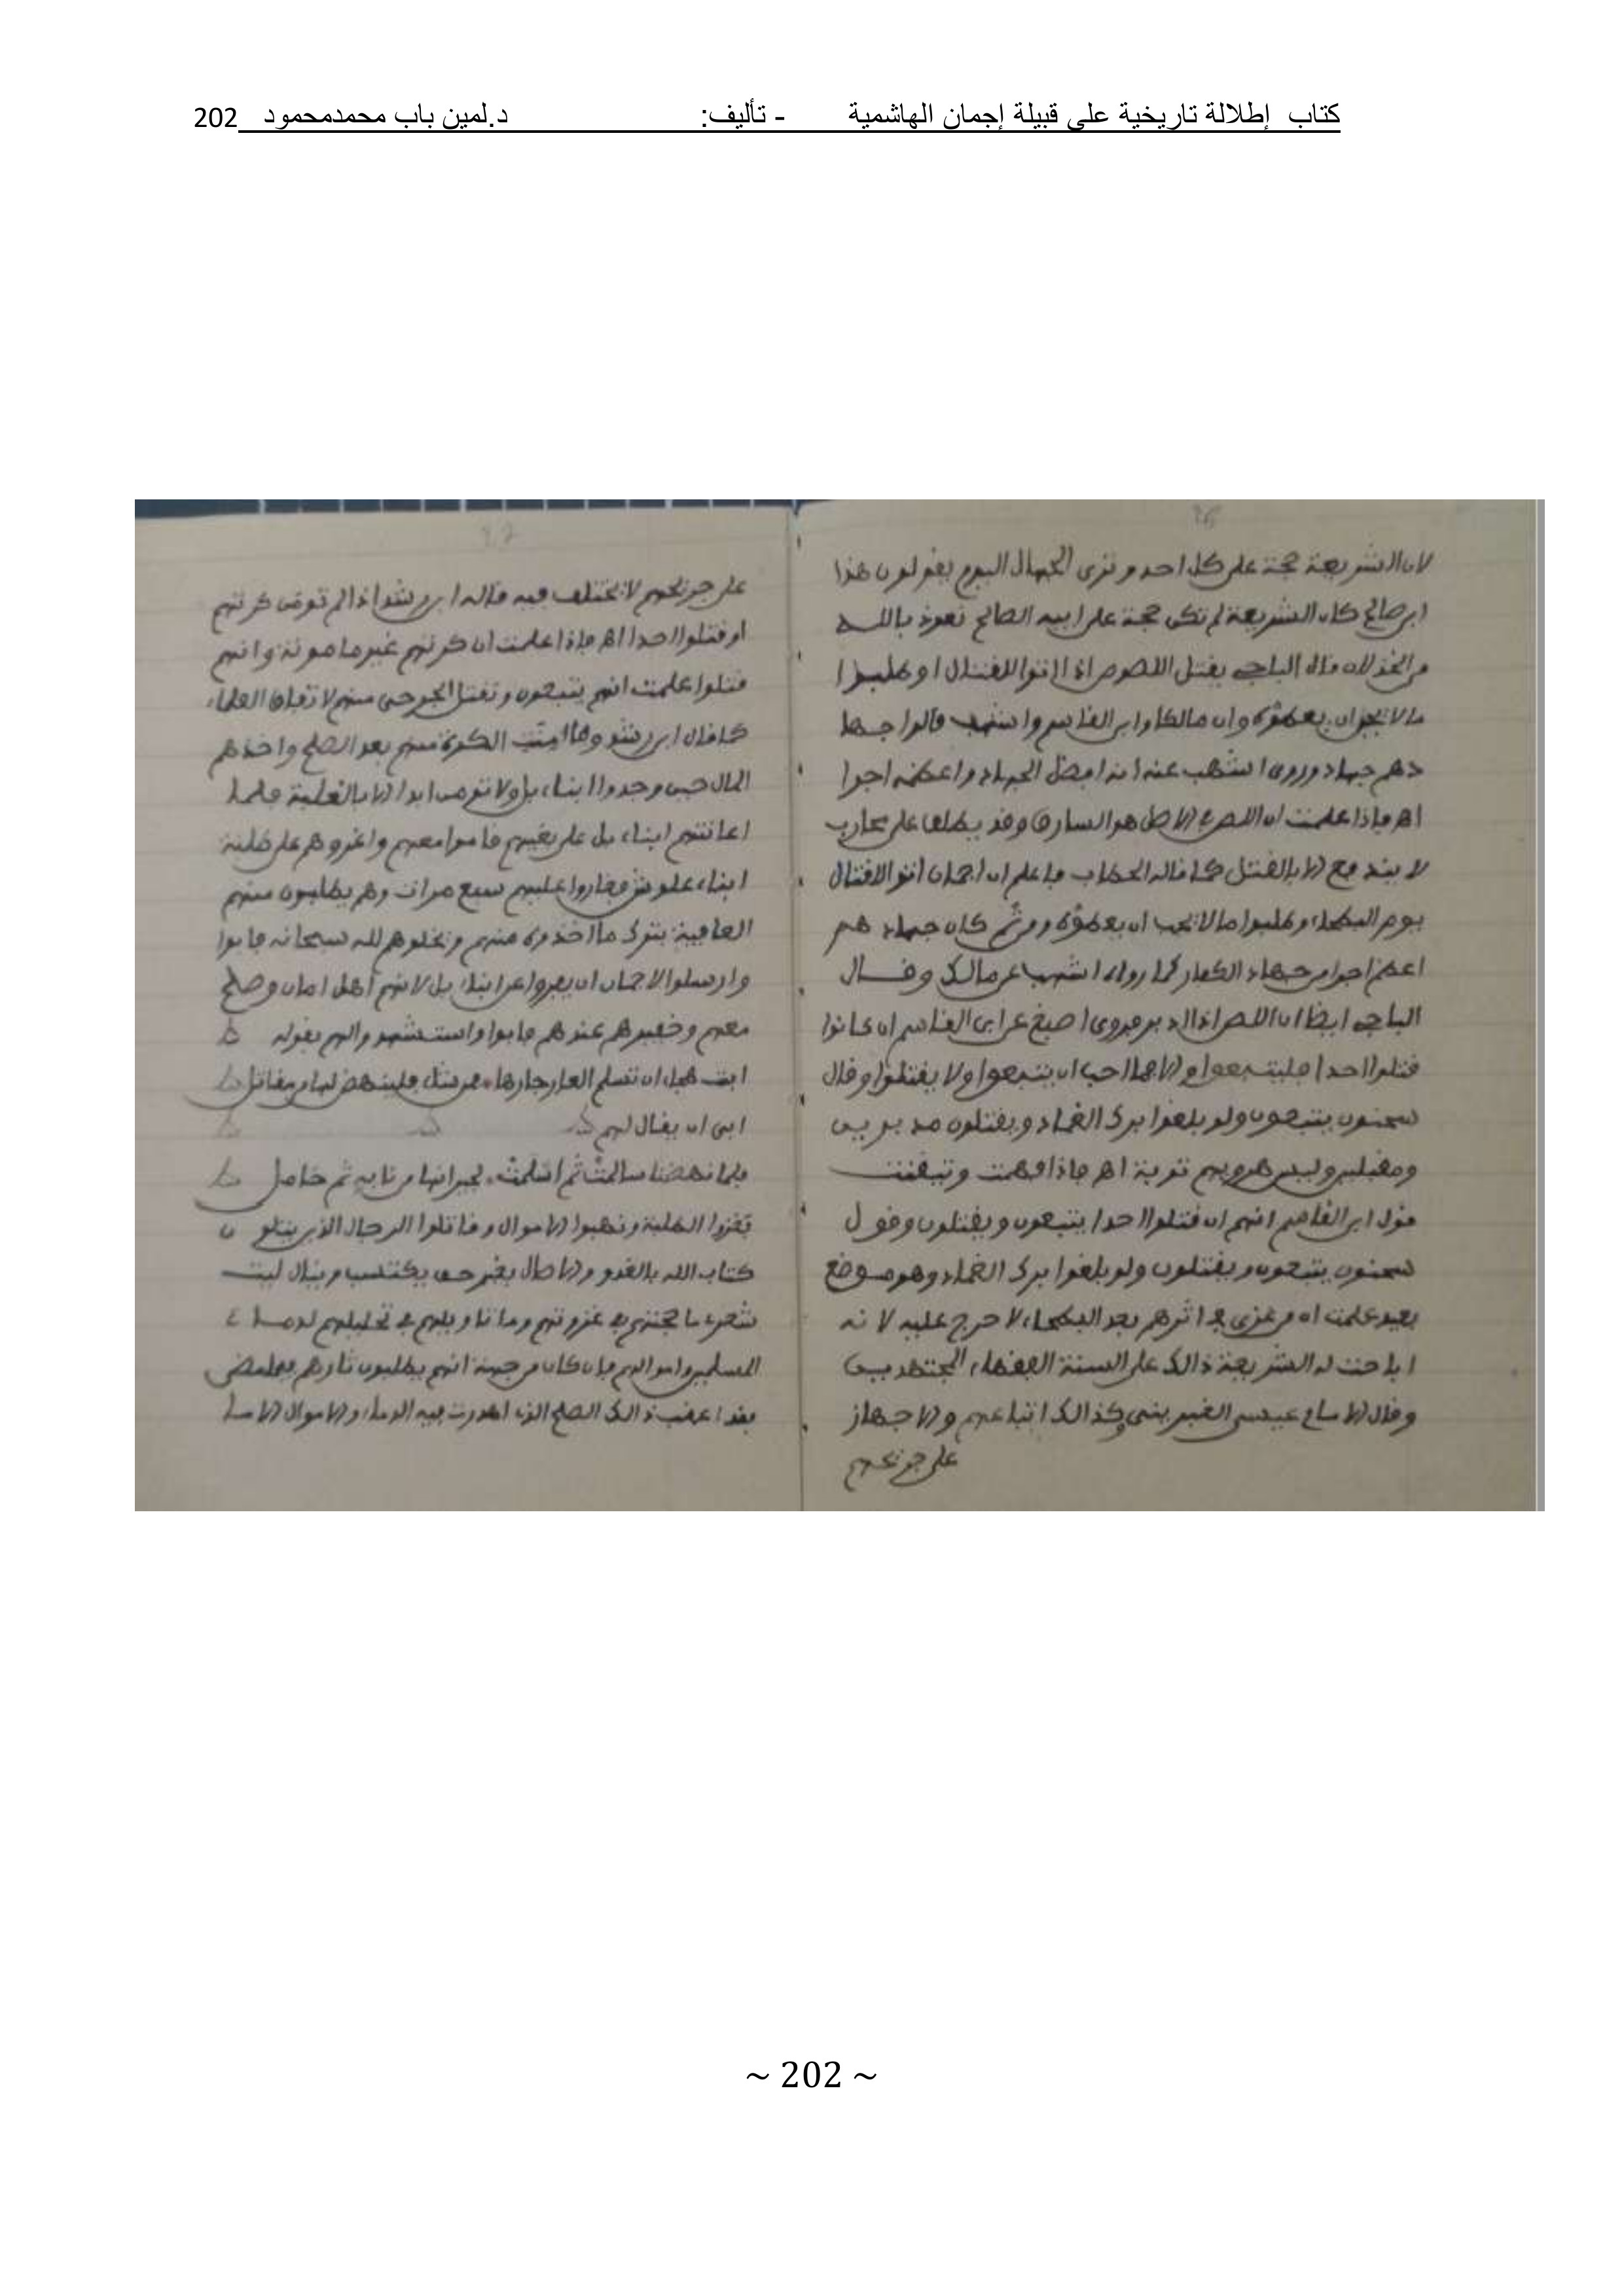 كتاب إطلالة تاريخية على قبيلة إجمان الهاشمية - تأليف: د.لمين باب محمدمحمود 202
لان الشريعة حجة على كل احد وترى الجهال اليوم يقولون هذا
ابن صالح كان الشريعة لم تكن حجة على ابيه الصالح نعوذ بالله
من الخذلان قال الباجي يقتل اللصوص اذا اتوا للقتال او طلبوا
ما لا يجب ان يعطوه وان مالكا وابن القاسم واشهب قالوا جها
دهم جهاد وروى اشهب عنه انه افضل الجهاد واعظمه اجرا
اهـ فإذا علمت ان اللص في الاصل هو السارق وقد يطلق على محارب
لا يندفع الا بالقتل كما قاله الحطاب فاعلم ان اجمان اتوا للاقتتال
يوم البطحاء وطلبوا ما لا يجب ان يعطوه ومن ثم كان جهاد هم
اعظم اجرا من جهاد الكفار كما رواه اشهب عن مالك وقال
الباجي ايضا ان اللص اذا ادبر فروى اصبغ عن ابن القاسم ان كانوا
قتلوا احدا فليتبعوا والا فما احب ان يتبعوا ولا يقتلوا وقال
سحنون يتبعون ولو بلغوا برك الغماد ويقتلون مدبرين
ومقبلين وليس هروبهم توبة اهـ فإذا فهمت وتيقنت
قول ابن القاسم انهم ان قتلوا احدا يتبعون ويقتلون وقول
سحنون يتبعون ويقتلون ولو بلغوا برك الغماد وهو موضع
بعيد علمت ان من غزى في اثرهم بعد البطحاء لا حرج عليه لا نه
اباحت له الشريعة ذالك على السنة الفقهاء المجتهدين
وقال الامام عيسى الغبريني وكذالك اتباعهم والاجهاز
على جريحهم
على جريحهم لا يختلف فيه قاله ابن رشد اذا لم تومن كرتهم
او قتلوا احدا اهـ فإذا علمت ان كرتهم غير مامونة وانهم
قتلوا علمت انهم يتبعون وتقتل الجرحى منهم لاتفاق العلماء
كما قال ابن رشد وما امنت الكرة منهم بعد الصلح واخذهم
المال حين وجدوا ابناء بل ولا تومن ابدا الا بالغلبة فلما
اعانتهم ابناء بل على بغيهم قاموا معهم واغزوهم على طلبة
ابناء علوش فغاروا عليهم سبع مرات وهم يطلبون منهم
العافية بترك ما اخذوه منهم ويخلوهم لله سبحانه فابوا
وارسلوا لاجمان ان يعروا عن ابناء بل لانهم أهل امان وصلح
معهم وخفيرهم عندهم فابوا واستشهدوا لهم بقوله
ابت هبل ان تسلم العار جارها فمن قتل فلينهض لها من مقاتل
ابى ان يقال لهم
فلما نهضنا سالمت ثم اسلمت لجيرانها من نابه ثم خامل
تغزوا الطلبة ونهبوا الاموال وقاتلوا الرجال الذين يتلون
كتاب الله بالغدو والاصال بغير حق يكتسب وينال ليت
شعري ما حجتهم في غزوتهم وما تاويلهم في تحليلهم لدماء
المسلمين واموالهم فإن كان من جهة انهم يطلبون ثارهم فيما مضى
فقد اعقب ذالك الصلح الذي اهدرت فيه الدماء والاموال
~ 202 ~